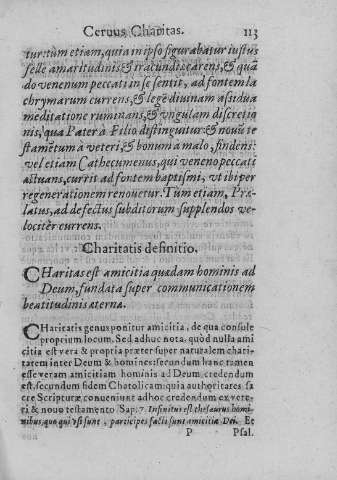 Ceruus Charitas. 113
tur: tùm etiam, quia in ipso figurabatur iustus
felle amaritudinis & iracundiæ carens, & quã
do venenum peccati in se sentit, ad fontem la
chrymarum currens, & legẽ diuinam assidua
meditatione ruminans, & vngulam discretio
nis, qua Pater à Filio distinguitur: & nouũ te
stamẽtum à veteri, & bonum à malo, findens:
vel etiam Cathecumenus, qui veneno peccati
æstuans, currit ad fontem baptismi, vt ibi per
regenerationem renouetur. Tùm etiam, Præ-
latus, ad defectus subditorum supplendos ve-
lociter currens.
Charitatis definitio.
CHaritas est amicitia quædam hominis ad
Deum, fundata super communicationem
beatitudinis æternæ.
CHaritatis genus ponitur amicitia, de qua consule
proprium locum. Sed adhuc nota, quòd nulla ami
citia est vera & propria præter super naturalem chari-
tatem inter Deum & homines: secundum hanc tamen
esse veram amicitiam hominis ad Deum, credendum
est, secundum fidem Chatolicam: quia authoritates sa
cræ Scripturæ conueniunt adhoc credendum ex vete-
ri & nouo testamento Sap. 7. Infinitus est thesaurus homi-
nibus, quo qui vsi sunt, participes facti sunt amicitiæ Dei. Et
P Psal.